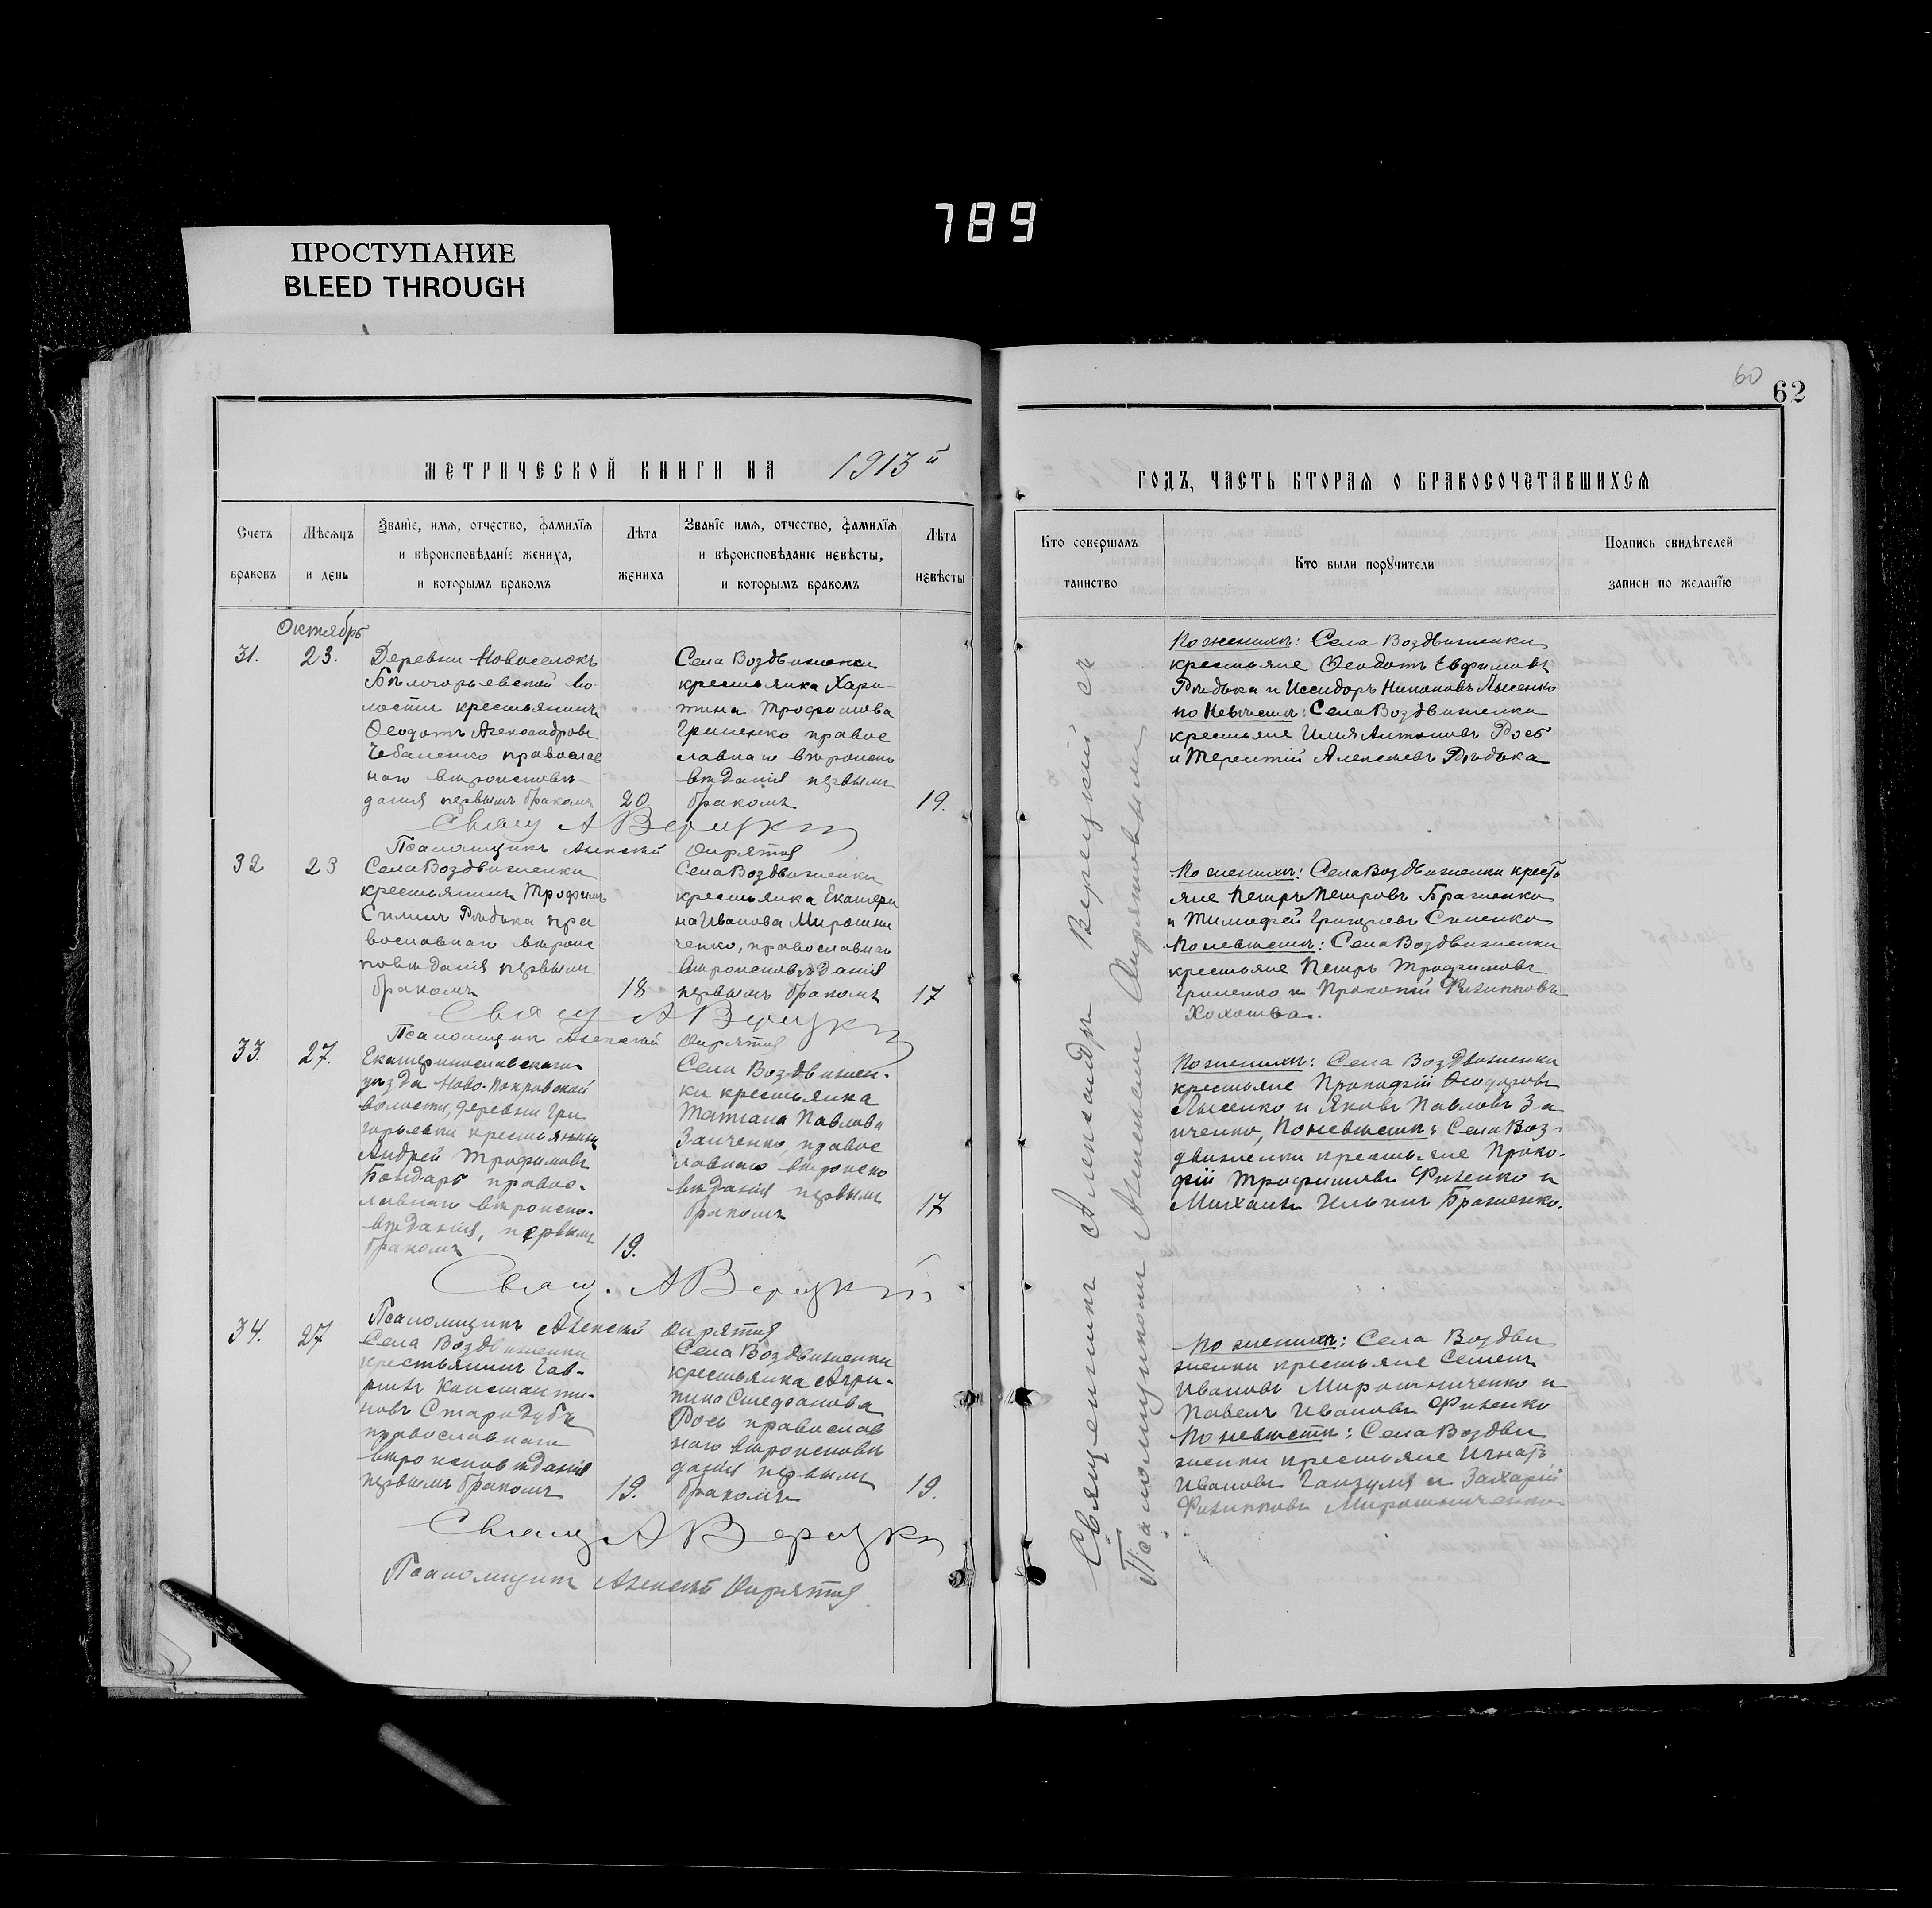 789
ПРОСТУПАНИЕ
BLEED THROUGH
60
62
МЕТРИЧЕСКОЙ КНИГИ НА 1913й
ГОДЪ, ЧАСТЬ ВТОРАЯ О БРАКОСОЧЕТАВШИХСЯ
Счетъ
браковъ
Мѣсяцъ
и день
Званіе, имя, отчество, фамилія
и вѣроисповѣданіе жениха,
и которымъ бракомъ
Лѣта
жениха
Званіе имя, отчество, фамилія
и вѣроисповѣданіе невѣсты,
и которымъ бракомъ
Лѣта
невѣсты
Кто совершалъ
таинство
Кто были поручители
Подпись свидѣтелей
записи по желанію
Октябрь
31.
23.
Деревни Новоселокъ
Бѣлогорьевской во
лости крестьянинъ
Ѳеодотъ Александровъ
Чебаненко православ
наго вѣроисповѣ
данія первымъ бракомъ
20
Села Воздвиженки
крестьянка Хари-
тина Трофимова
Гриненко правос
лавнаго вѣроиспо
вѣданія первымъ
бракомъ
19.
По женихѣ: Села Воздвиженки
крестьяне Ѳеодотъ Евфимовъ
Рѣдька и Исидоръ Никоновъ Лысенко
по Невѣстѣ: Села Воздвиженки
крестьяне Илія Антоновъ Рось
и Терентій Алексѣевъ Рѣдька
Свящ А Верецкій
Псаломщикъ Алексѣй Опрятов
32
23
Села Воздвиженки
крестьянинъ Трофимъ
Силинъ Рѣдька пра
вославнаго вѣроис
повѣданія первымъ
бракомъ
18
Села Воздвиженки
крестьянка Екатери
на Иванова Мирошни
ченко, православнаго
вѣроисповѣданія
первымъ бракомъ
17
По женихѣ: Села Воздвиженки кресть
яне Петръ Петровъ Браженко
и Тимофей Григорьевъ
По невѣстѣ: Села Воздвиженки
крестьяне Петръ Трофимовъ
Гриненко и Прокопій Филипповъ
Холошва.
Свящ А Верецкій
Псаломщикъ Алексѣй Опрятов
33.
27.
Екатеринославскаго
уѣзда Ново-Покровской
волости, деревни Гри
горьевки крестьянинъ
Андрей Трофимовъ
Бондарь правос-
лавнаго вѣроиспо-
вѣданія, первымъ
бракомъ
19.
Села Воздвижен-
ки крестьянка
Татіана Павлова
Заиченко, правос
лавнаго вѣроиспо
вѣданія первымъ
бракомъ
17
По женихѣ: Села Воздвиженки
крестьяне Прокофій Ѳеодоровъ
Лысенко и Яковъ Павловъ За
иченко, По невѣстѣ: Села Воз-
движенки крестьяне Проко-
фій Трофимовъ Филенко и
Михаилъ Ильинъ Браженко.
Свящ. А Верецкій
Псаломщикъ Алексѣй Опрятов
34.
27
Села Воздвиженки
крестьянинъ Гав-
рилъ Константи-
новъ Стародубъ
православнаго
вѣроисповѣданія
первымъ бракомъ
19.
Села Воздвиженки
крестьянка Агри-
пина Стефанова
Рось православ
наго вѣроисповѣ
данія первымъ
бракомъ
19.
По женихѣ: Села Воздви
женки крестьяне Семенъ
Ивановъ Мирошниченко и
Павелъ Ивановъ Филенко
По невѣстѣ: Села Воздви
женки крестьяне Игнатъ
Ивановъ Ганзуля и Захарій
Филипповъ Мирошниченко
Свящ А Верецкій
Псаломщикъ Алексѣй Опрятов
Священникъ Александръ Верецкій съ
Псаломщикомъ Алексѣемъ Опрятовымъ